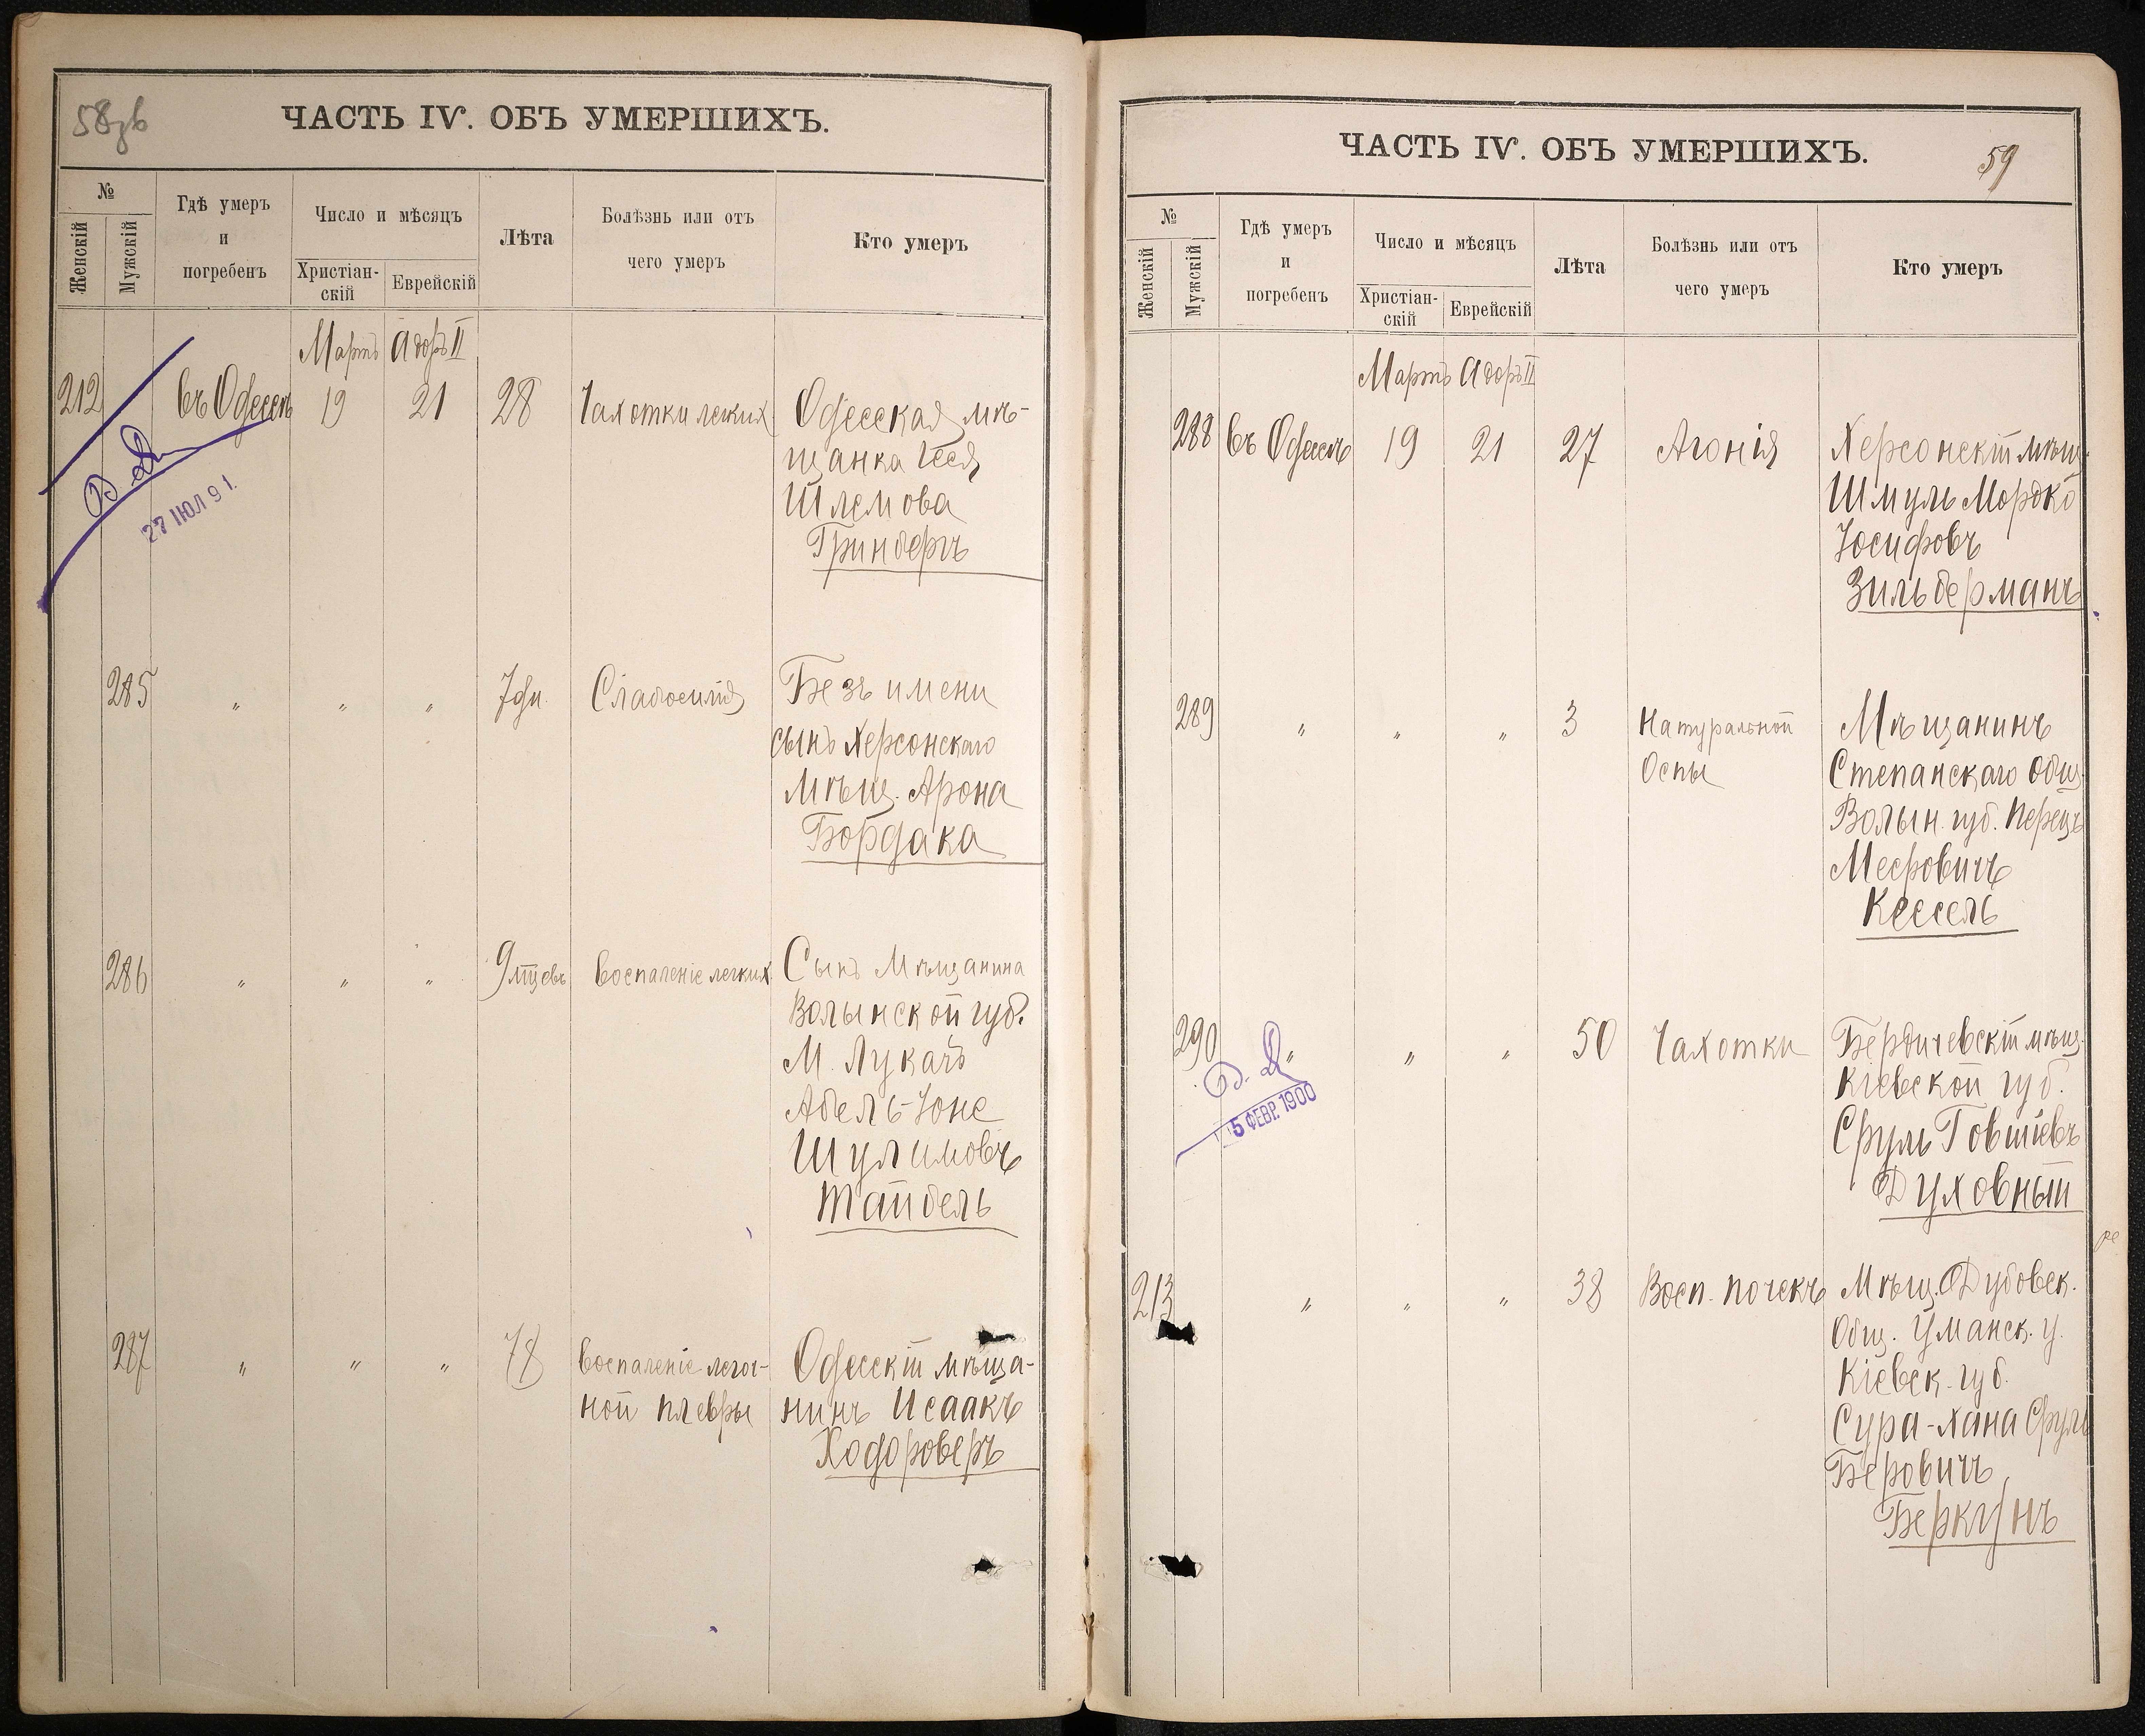 58об
ЧАСТЬ IV. ОБЪ УМЕРШИХЪ.
№
Женскій
Мужскій
Гдѣ умеръ
и
погребенъ
Число и мѣсяцъ
Христіан-
скій
Еврейскій
Лѣта
Болѣзнь или отъ
чего умеръ
Кто умеръ
Мартъ Адоръ II
212 въ Одессѣ 19 21 28 Чахотки легких Одесская мѣ-
щанка Геся
Шлемова
Гринбергъ
27 ІЮЛ 91.
285 " " " 7 дн. Слабосилія Безъ имени
сынъ Херсонскаго
мѣщ. Арона
Бордака
286 " " " 9 мцевъ Воспаленіе легких Сынъ Мѣщанина
Волынской губ.
М. Лукачъ
Абель-Іоне
Шулимовъ
Тайбель
287 " " " 78 Воспаленіе легоч- Одесскій мѣща-
ной плевры нинъ Исаакъ
Ходороверъ
ЧАСТЬ IV. ОБЪ УМЕРШИХЪ.
59
№
Женскій
Мужскій
Гдѣ умеръ
и
погребенъ
Число и мѣсяцъ
Христіан-
скій
Еврейскій
Лѣта
Болѣзнь или отъ
чего умеръ
Кто умеръ
Мартъ Адоръ II
288 въ Одессѣ 19 21 27 Агонія Херсонскій мѣщ.
Шмуль Мордко
Іосифовъ
Зильберманъ
289 " " " 3 Натуральной Мѣщанинъ
Оспы Степанскаго общ.
Волын. губ. Перецъ
Мееровичъ
Кессель
290 " " " 50 Чахотки Бердичевскій мѣщ.
Кіевской губ.
Сруль Говшіевъ
Духовный
15 ФЕВР. 1900
213 " " " 38 Восп. почекъ Мѣщ. Дубовск.
Общ. Уманск. у.
Кіевск. губ.
Сура-Хана Сруль
Беровичъ
Беркунъ